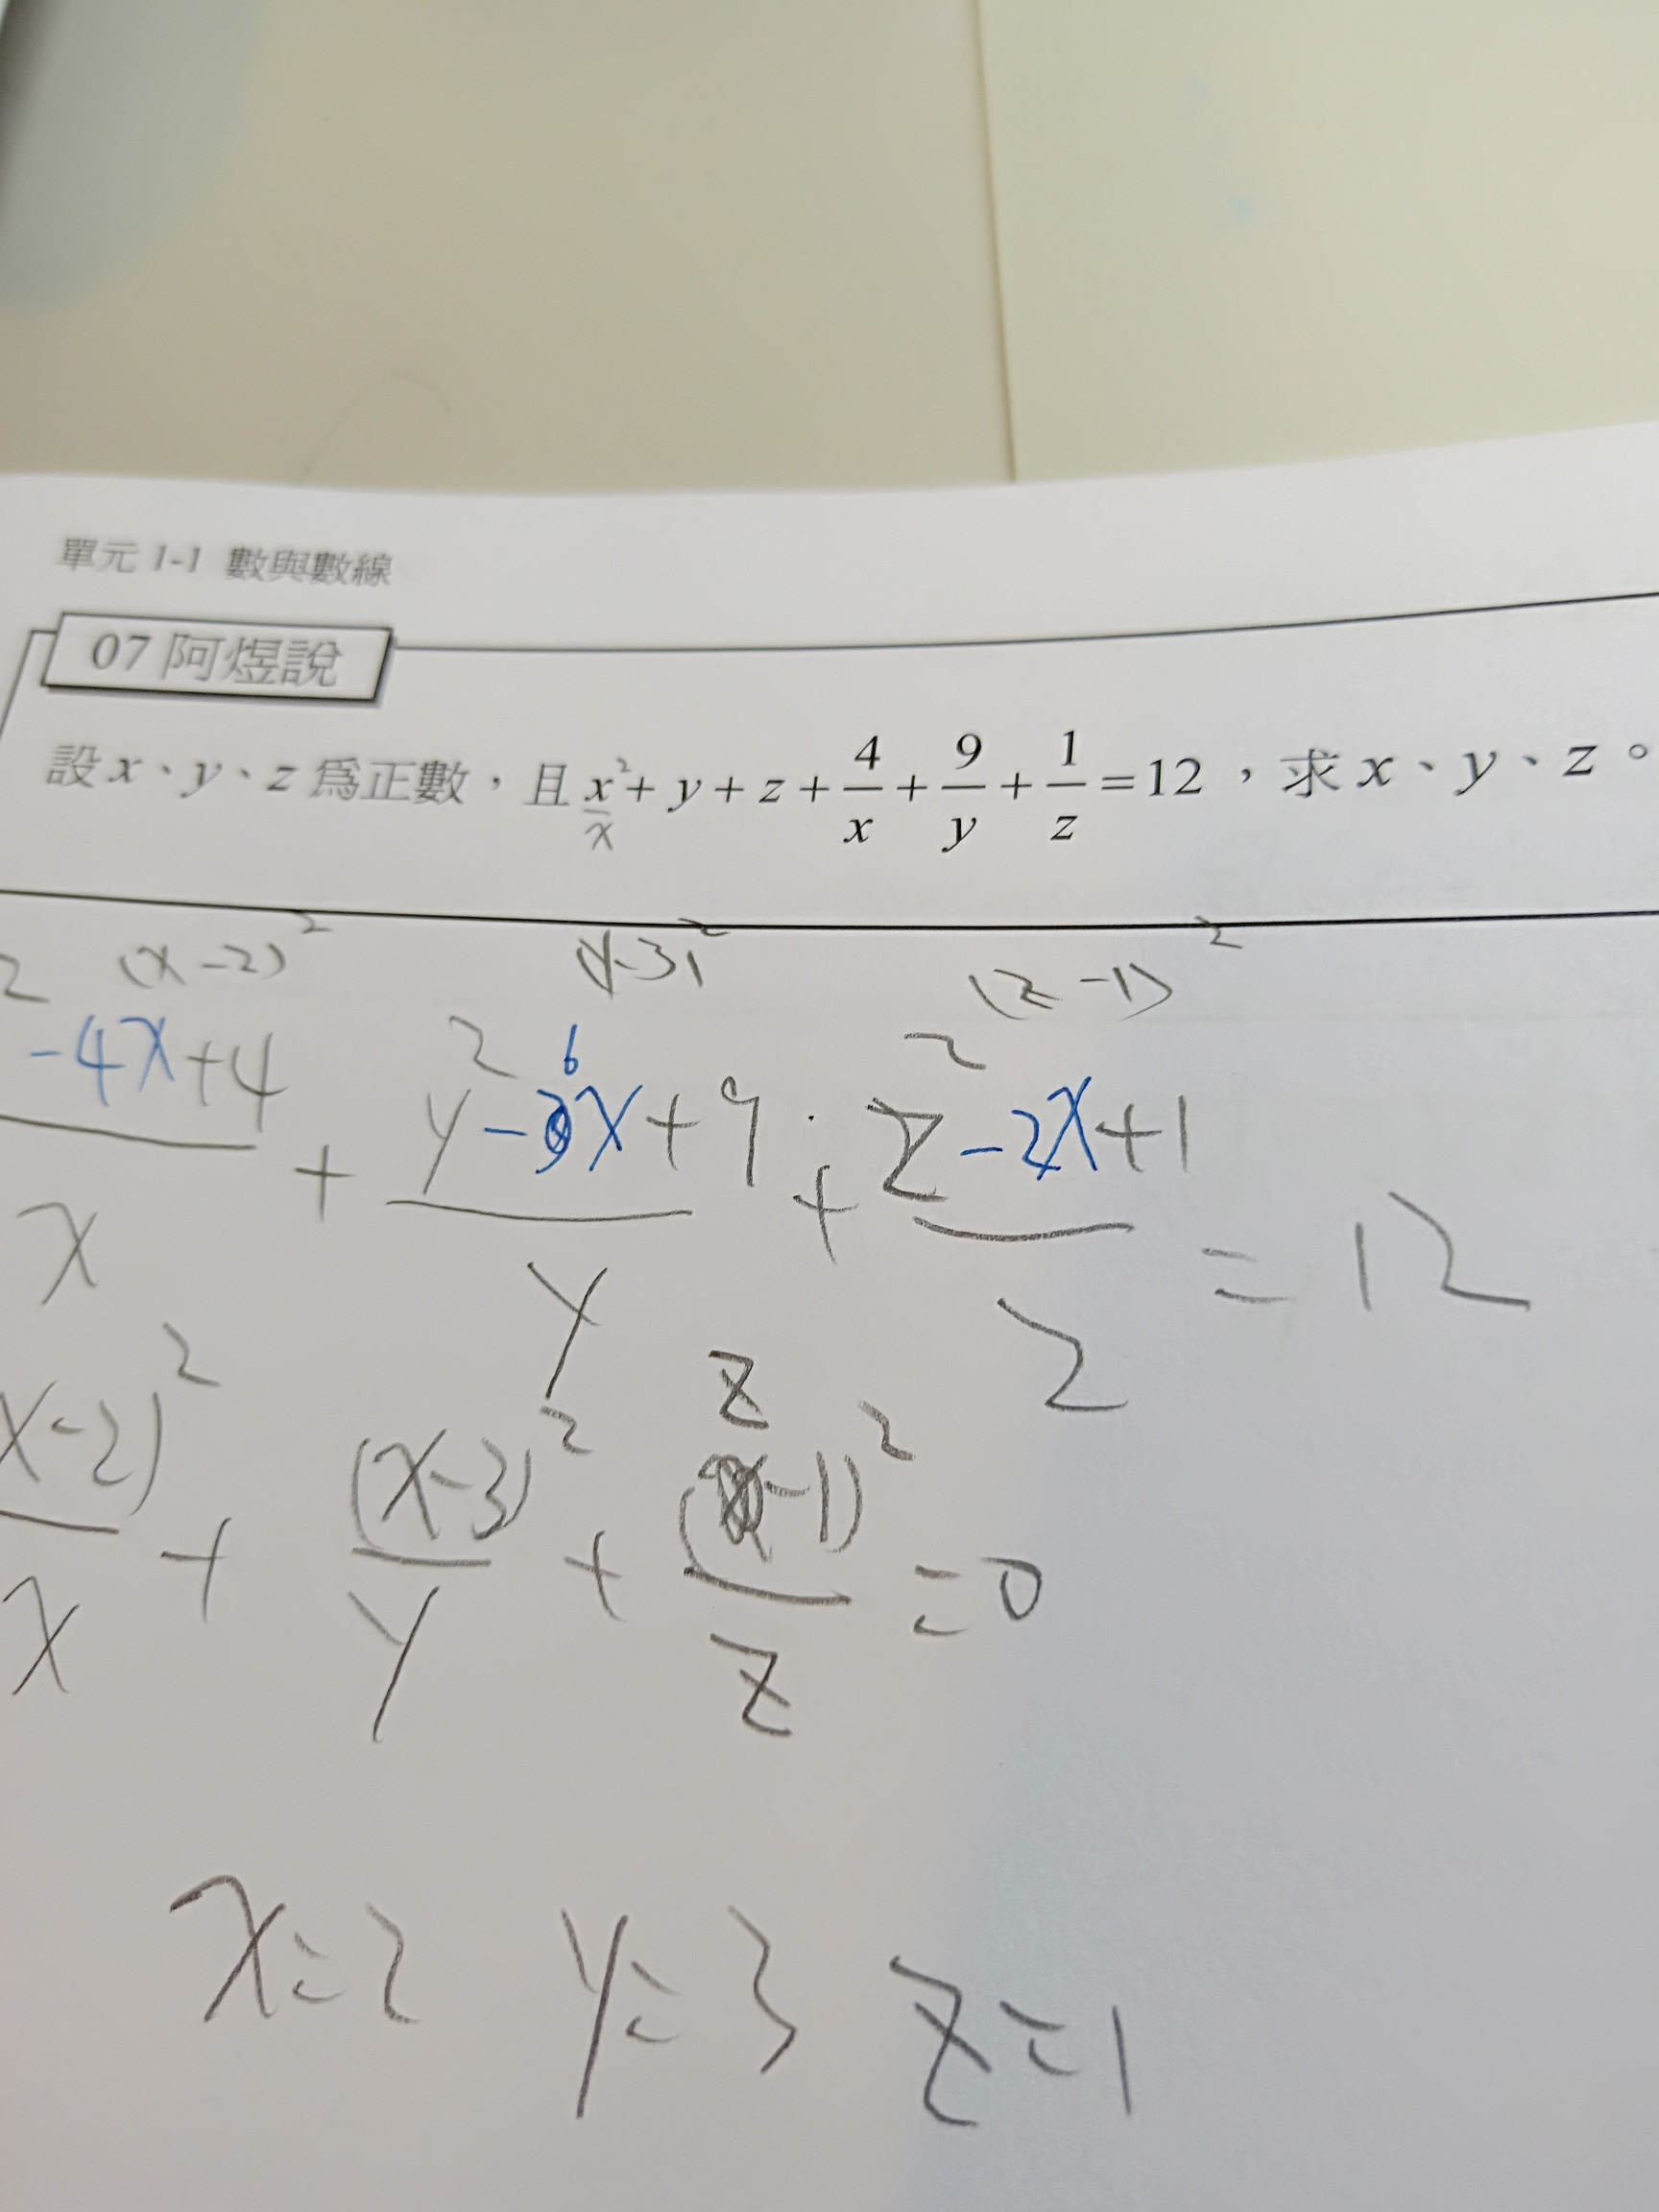 單元 1-1 數與數線
07 阿煜說
設 x、y、z 為正數，且 x²/x + y + z + 4/x + 9/y + 1/z = 12，求 x、y、z。
(x-2)² (y-3)² (z-1)²
² -4x+4 / x + y² - 6x+9 / y + z² -2x+1 / z = 12
x-2)² / x + (x-3)² / y + (z-1)² / z = 0
x=2 y=3 z=1